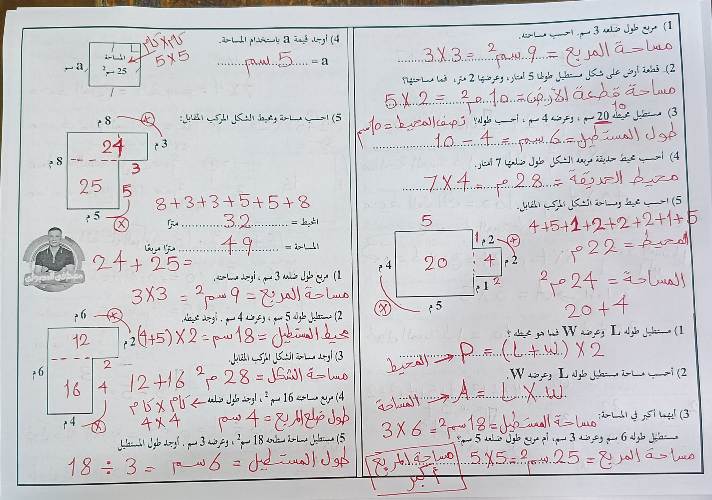 1) مربع طول ضلعه 3 سم. احسب مساحته.
مساحة المربع = 9 سم² = 3×3
2) قطعة أرض على شكل مستطيل طولها 5 أمتار، وعرضها 2 متر، فما مساحتها؟
مساحة قطعة الأرض = 10 م² = 5×2
3) مستطيل محيطه 20 سم، وعرضه 4 سم، احسب طوله؟ نصف المحيط = 10 سم
10
طول المستطيل = 6 سم = 10 - 4
4) احسب محيط حديقة مربعة الشكل طول ضلعها 7 أمتار.
محيط الحديقة = 28 م = 7×4
5) احسب محيط ومساحة الشكل المركب المقابل.
4+5+1+2+2+2+1+5
المحيط = 22 م
المساحة = 24 م²
20+4
5
20
4
1
2 م
2 م
4 م
1 م
2
5 م
1) مستطيل طوله L وعرضه W فما هو محيطه ؟
المحيط → P = (L+W)×2
2) احسب مساحة مستطيل طوله L وعرضه W.
المساحة → A = L×W
3) أيهما أكبر في المساحة:
مساحة المستطيل = 18 سم² = 3×6
مستطيل طوله 6 سم وعرضه 3 سم، أم مربع طول ضلعه 5 سم؟
مساحة المربع = 25 سم² = 5×5
مساحة المربع أكبر
4) أوجد قيمة a باستخدام المساحة.
a = 5 سم
5×5
المساحة
25 سم²
a سم
5) احسب مساحة ومحيط الشكل المركب المقابل:
8 م
24
3 م
8 م
3
25
5
5 م
8+3+3+5+5+8
المحيط = 32 مترًا
المساحة = 49 مترًا مربعًا
24+25=
1) مربع طول ضلعه 3 سم، أوجد مساحته.
مساحة المربع = 9 سم² = 3×3
2) مستطيل طوله 5 سم، وعرضه 4 سم، أوجد محيطه.
محيط المستطيل = 18 سم = 2×(4+5)
3) أوجد مساحة الشكل المقابل.
مساحة الشكل = 28 م² 12+16
6 م
12
2 م
6 م
2
16
4
4 م
4) مربع مساحته 16 سم²، أوجد طول ضلعه
طول ضلع المربع = 4 سم 4×4
5) مستطيل مساحة سطحه 18 سم²، وعرضه 3 سم. أوجد طول المستطيل
طول المستطيل = 6 سم = 18 ÷ 3